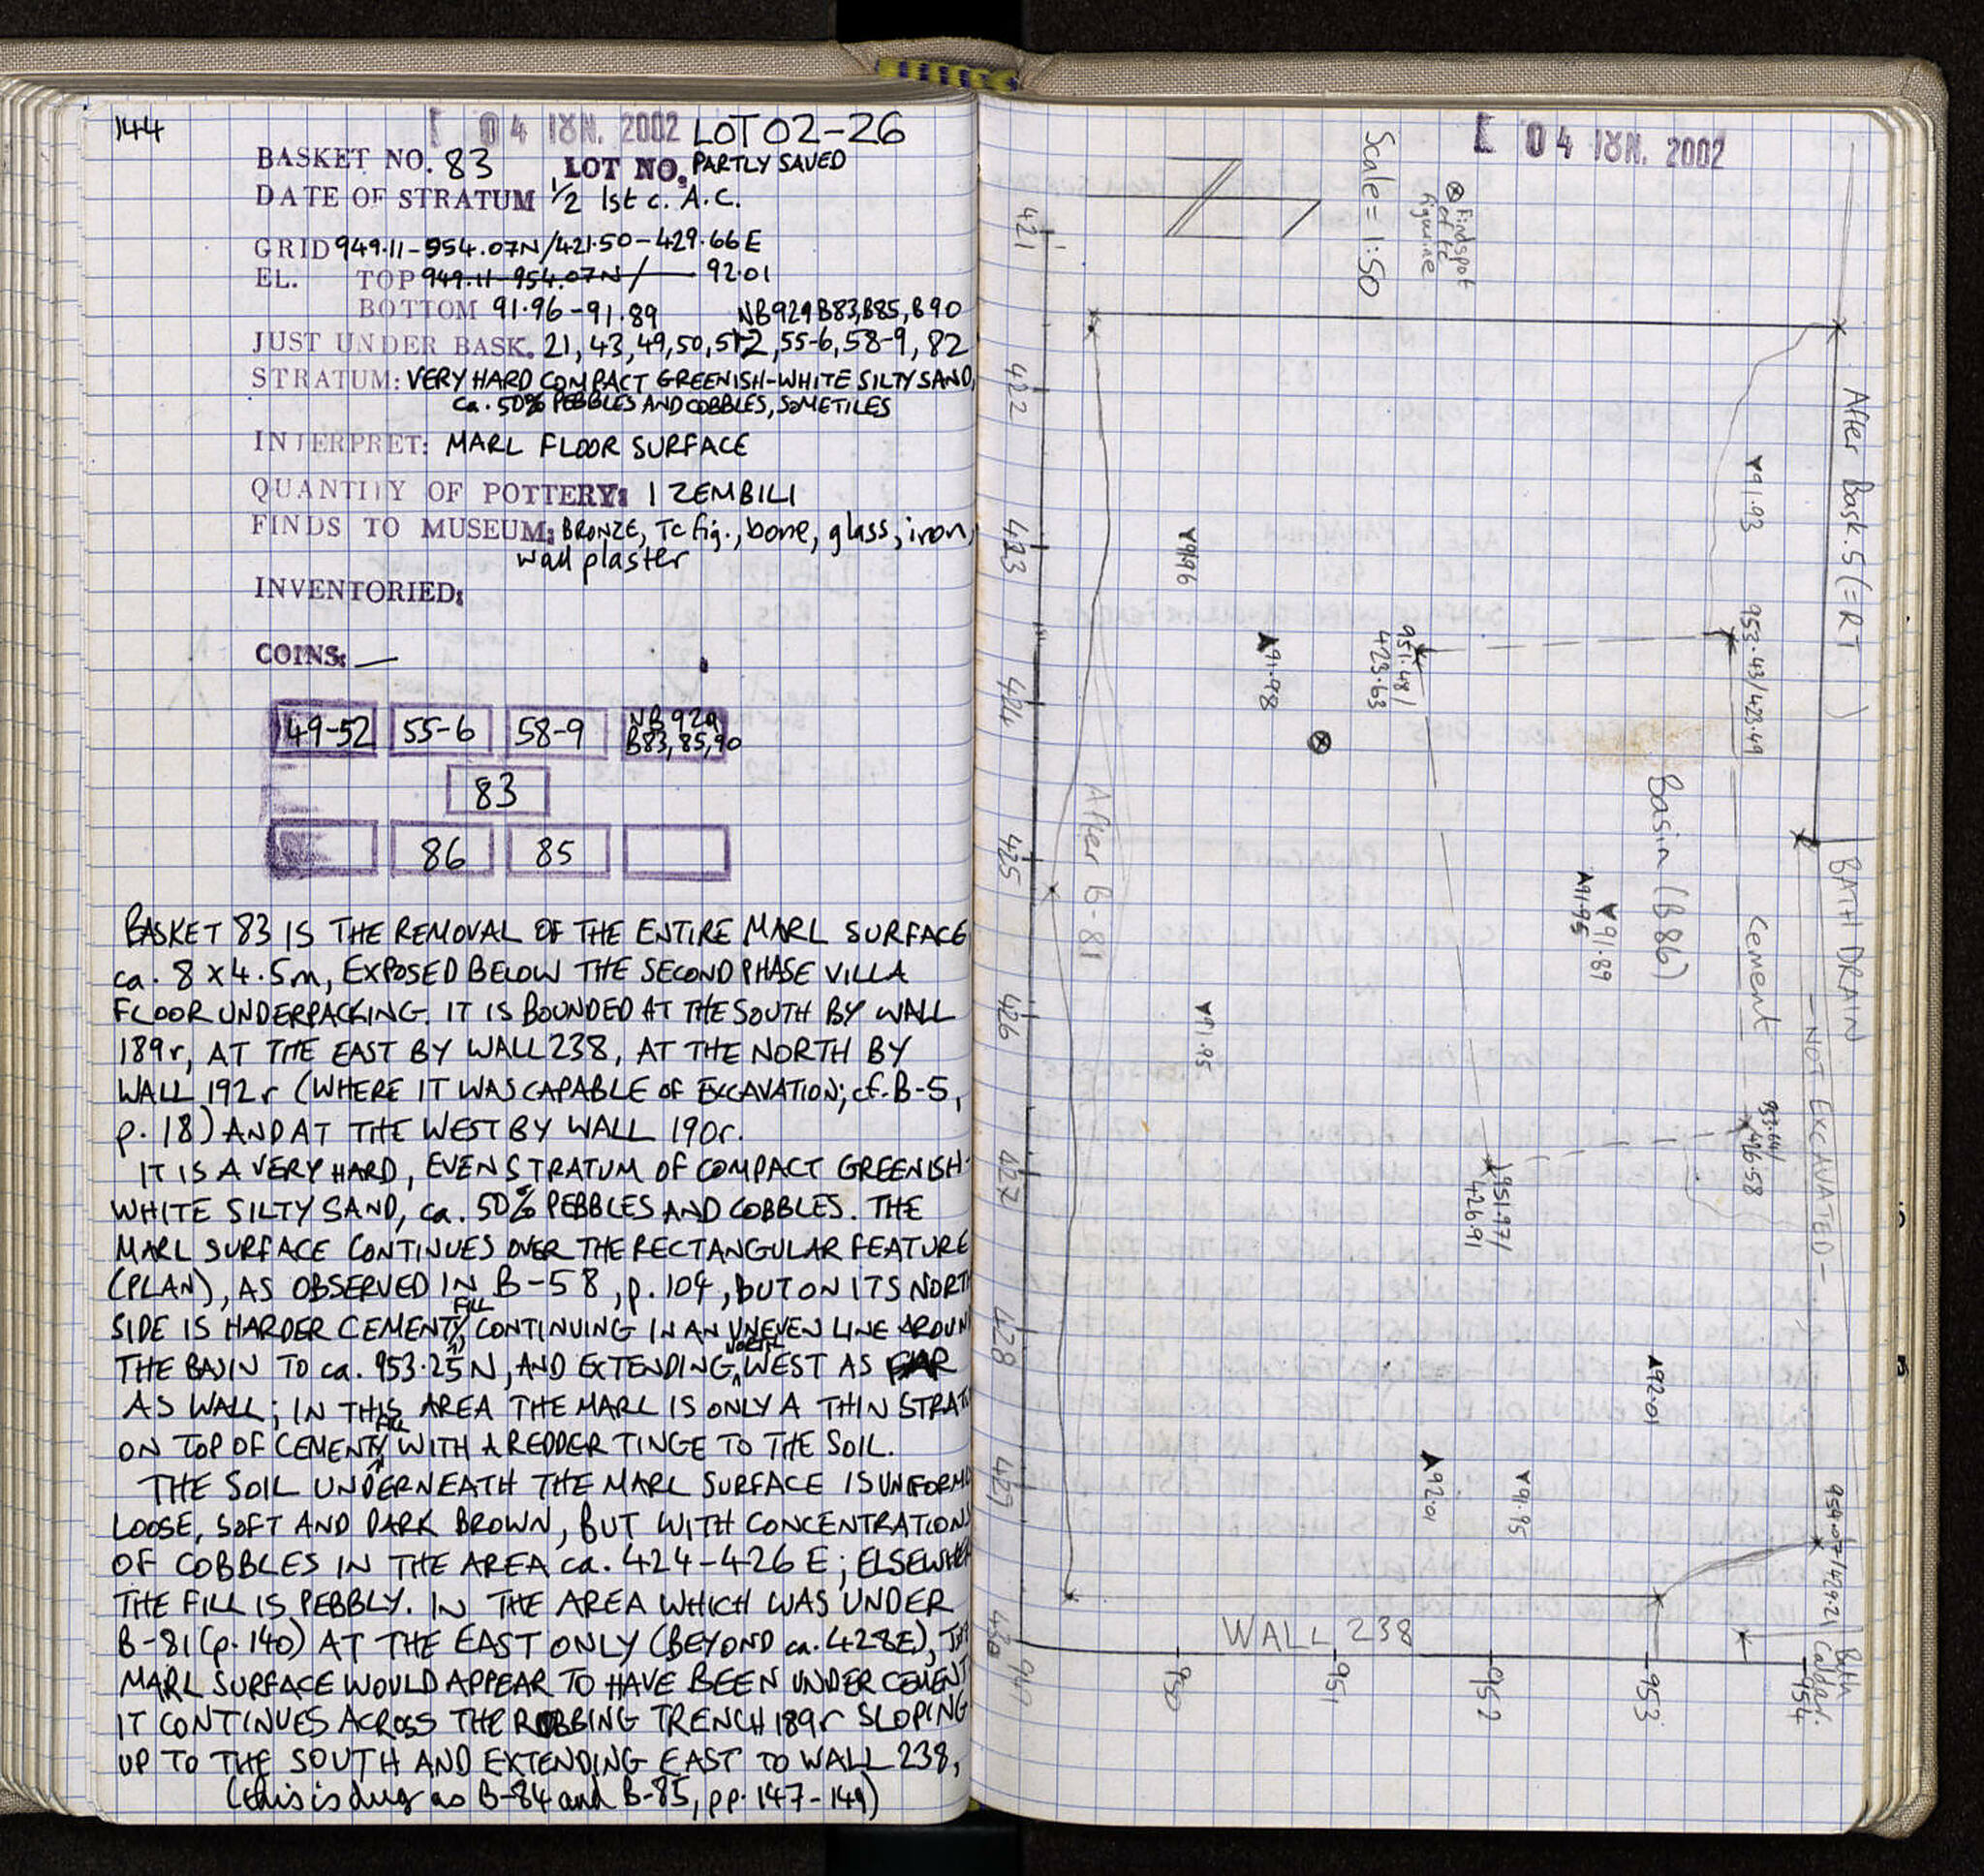 144
04 IUN. 2002 LOT 02-26
BASKET NO. 83 LOT NO. PARTLY SAVED
DATE OF STRATUM 1/2 1st c. A.C.
GRID 949.11-954.07N/421.50-429.66E
EL. TOP 949.11-954.07N/ 92.01
BOTTOM 91.96-91.89 NB929 B83, B85, B90
JUST UNDER BASK. 21, 43, 49, 50, 51-2, 55-6, 58-9, 82
STRATUM: VERY HARD COMPACT GREENISH-WHITE SILTY SAND,
ca. 50% PEBBLES AND COBBLES, SOME TILES
INTERPRET: MARL FLOOR SURFACE
QUANTITY OF POTTERY: 1 ZEMBILI
FINDS TO MUSEUM: BRONZE, TC fig., bone, glass, iron,
wall plaster
INVENTORIED:
COINS: —
49-52 55-6 58-9 NB 929
B83, 85, 90
83
86 85
BASKET 83 IS THE REMOVAL OF THE ENTIRE MARL SURFACE
ca. 8 x 4.5m, EXPOSED BELOW THE SECOND PHASE VILLA
FLOOR UNDERPACKING. IT IS BOUNDED AT THE SOUTH BY WALL
189r, AT THE EAST BY WALL 238, AT THE NORTH BY
WALL 192r (WHERE IT WAS CAPABLE OF EXCAVATION; cf. B-5,
p. 18) AND AT THE WEST BY WALL 190r.
IT IS A VERY HARD, EVEN STRATUM OF COMPACT GREENISH-
WHITE SILTY SAND, ca. 50% PEBBLES AND COBBLES. THE
MARL SURFACE CONTINUES OVER THE RECTANGULAR FEATURE
(PLAN), AS OBSERVED IN B-58, p. 104, BUT ON ITS NORTH
SIDE IS HARDER CEMENTY FILL, CONTINUING IN AN UNEVEN LINE AROUN
THE BASIN TO ca. 953.25 N, AND EXTENDING NORTH WEST AS FAR
AS WALL; IN THIS AREA THE MARL IS ONLY A THIN STRAT
ON TOP OF CEMENTY FILL WITH A REDDER TINGE TO THE SOIL.
THE SOIL UNDERNEATH THE MARL SURFACE IS UNIFORM
LOOSE, SOFT AND DARK BROWN, BUT WITH CONCENTRATIONS
OF COBBLES IN THE AREA ca. 424-426 E; ELSEWHE
THE FILL IS PEBBLY. IN THE AREA WHICH WAS UNDER
B-81 (p. 140) AT THE EAST ONLY (BEYOND ca. 428E), THE
MARL SURFACE WOULD APPEAR TO HAVE BEEN UNDER CEMENT
IT CONTINUES ACROSS THE ROBBING TRENCH 189r SLOPING
UP TO THE SOUTH AND EXTENDING EAST TO WALL 238,
(this is dug as B-84 and B-85, pp. 147-149)
04 IUN. 2002
Scale = 1:50
⊗ Findspot
of TC
figurine
After Bask. 5 (= RT
)
421
422
423
424
425
426
427
428
429
430
91.93
91.96
91.98
951.48/
423.63
953.43/423.49
Basin (B86)
After B-81
91.95
91.89
Cement
BATH DRAIN
- NOT EXCAVATED -
91.95
953.64/
426.58
951.97/
426.91
92.01
92.01
91.95
954.07/429.21
WALL 238
Bath
Caldar.
949
950
951
952
953
954